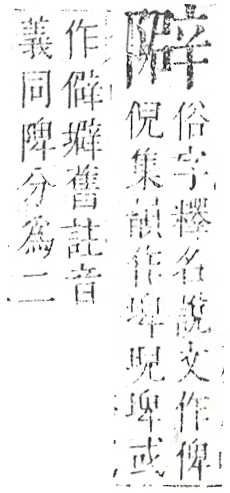 俗字釋名說文作俾
倪集韻作埤堄埤或
作僻壀舊註音
義同陴分為二